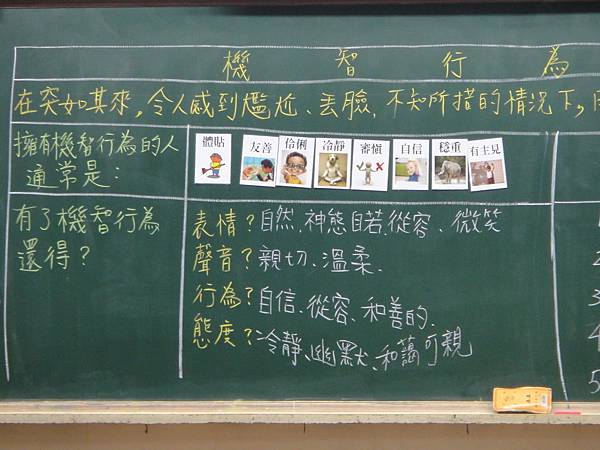 機智行為
在突如其來,令人感到尷尬、丟臉、不知所措的情況下,
擁有機智行為的人
通常是:
體貼 友善 伶俐 冷靜 審慎 自信 穩重 有主見
有了機智行為
還得?
表情?自然、神態自若、從容、微笑
聲音?親切、溫柔.
行為?自信、從容、和善的.
態度?冷靜、幽默、和藹可親